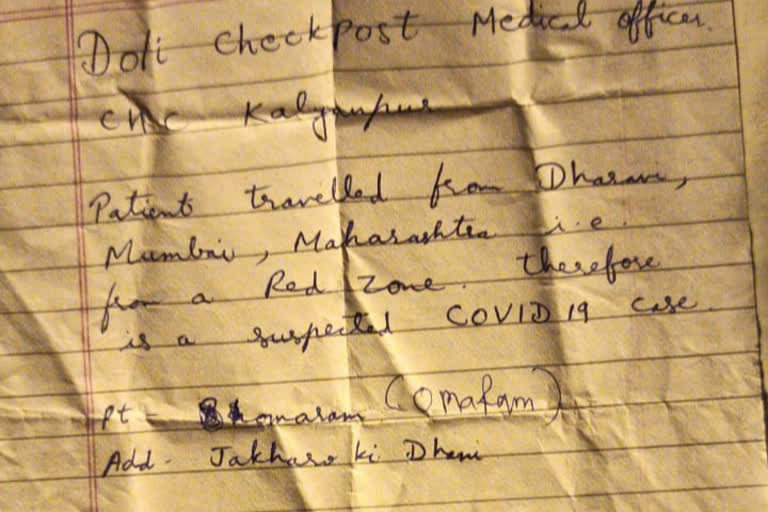 Doli Checkpost Medical officer.
CHC Kalyanpur
Patient travelled from Dharavi,
Mumbai, Maharashtra i.e.
from a Red Zone. therefore
is a suspected COVID 19 case.
Pt - (Omaram)
Add - Jakharo ki Dhani